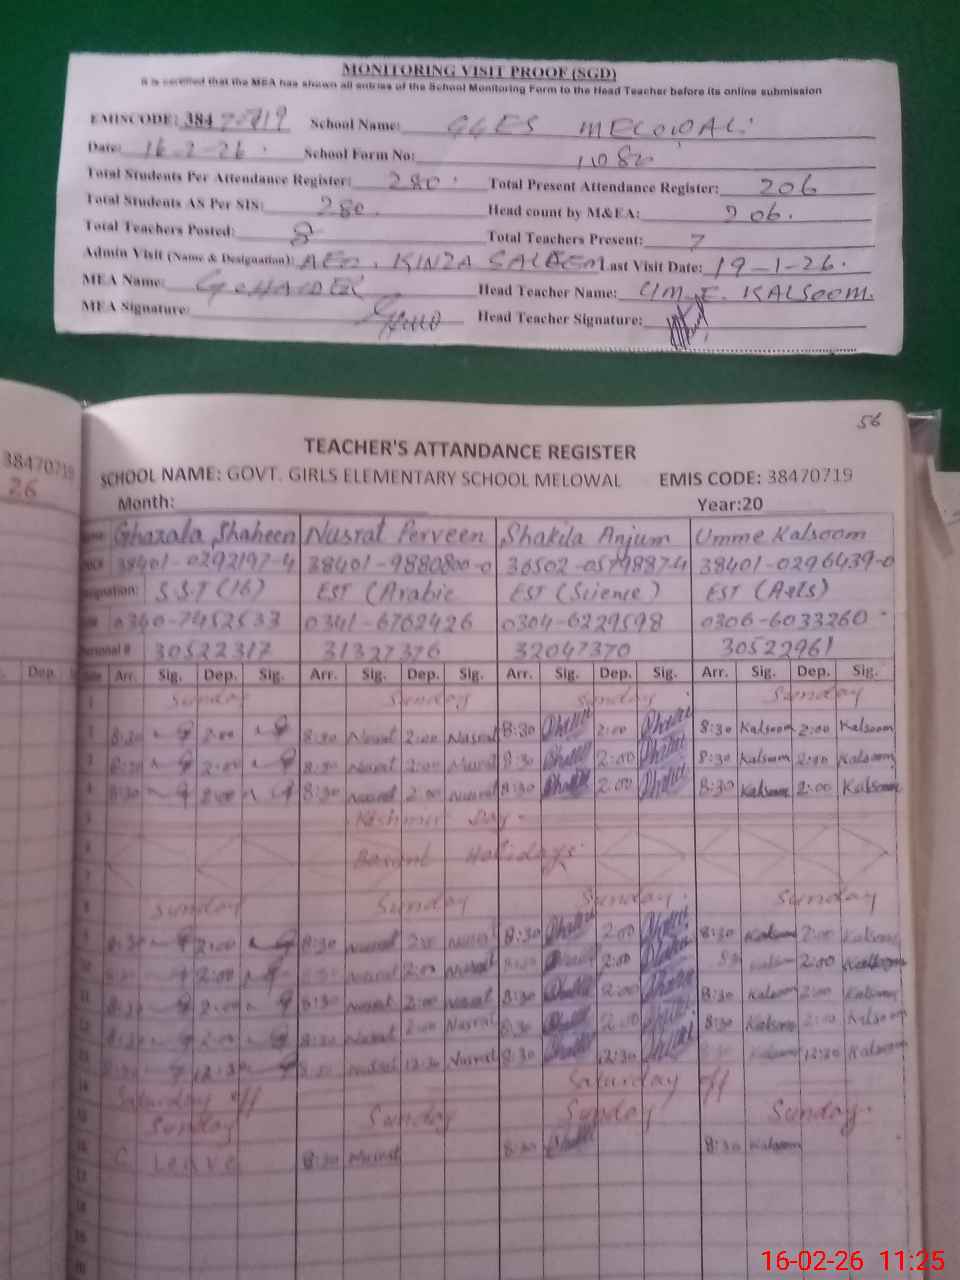 MONITORING VISIT PROOF (SGD)
It is certified that the MEA has shown all entries of the School Monitoring Form to the Head Teacher before its online submission
EMISCODE: 38470719 School Name: GGES MELOWAL
Date: 16-2-26 School Form No: 11082
Total Students Per Attendance Register: 280 Total Present Attendance Register: 206
Total Students AS Per SIS: 280 Head count by M&EA: 206
Total Teachers Posted: 8 Total Teachers Present: 7
Admin Visit (Name & Designation): AEO. KINZA SALEEM Last Visit Date: 19-1-26
MEA Name: G. HAIDER Head Teacher Name: UM-E. KALSOOM.
MEA Signature: Head Teacher Signature:
56
38470719
26
TEACHER'S ATTANDANCE REGISTER
SCHOOL NAME: GOVT. GIRLS ELEMENTARY SCHOOL MELOWAL EMIS CODE: 38470719
Month: Year:20
Ghazala Shaheen Nusrat Perveen Shakila Anjum Umme Kalsoom
38401-0292197-4 38401-9880800-0 36502-0579887-4 38401-0296439-0
S.S.T (16) EST (Arabic EST (Science) EST (Arts)
0340-7452533 0341-6762426 0304-6229598 0306-6033260
30522317 31327376 32047370 30522961
Dep. Arr. Sig. Dep. Sig. Arr. Sig. Dep. Sig. Arr. Sig. Dep. Sig. Arr. Sig. Dep. Sig.
1 Sunday Sunday Sunday Sunday
8:30 2:00 8:30 Nusrat 2:00 Nusrat 8:30 2:00 8:30 Kalsoom 2:00 Kalsoom
8:30 2:00 8:30 Nusrat 2:00 Nusrat 8:30 2:00 8:30 Kalsoom 2:00 Kalsoom
8:30 2:00 8:30 Nusrat 2:00 Nusrat 8:30 2:00 8:30 Kalsoom 2:00 Kalsoom
Kashmir Day
Basant Holidays
Sunday Sunday Sunday Sunday
8:30 2:00 8:30 Nusrat 2:00 Nusrat 8:30 2:00 8:30 Kalsoom 2:00 Kalsoom
2:00 Nusrat 2:00 Nusrat 2:00 2:00 Kalsoom
8:30 2:00 8:30 Nusrat 2:00 Nusrat 8:30 2:00 8:30 Kalsoom 2:00 Kalsoom
8:30 2:00 8:30 Nusrat 2:00 Nusrat 8:30 2:00 8:30 Kalsoom 2:00 Kalsoom
12:30 Nusrat 12:30 Nusrat 8:30 12:30 Kalsoom 12:30 Kalsoom
Saturday off Saturday off
Sunday Sunday Sunday Sunday
C Leave 8:30 Nusrat 8:30 8:30 Kalsoom
16-02-26 11:25